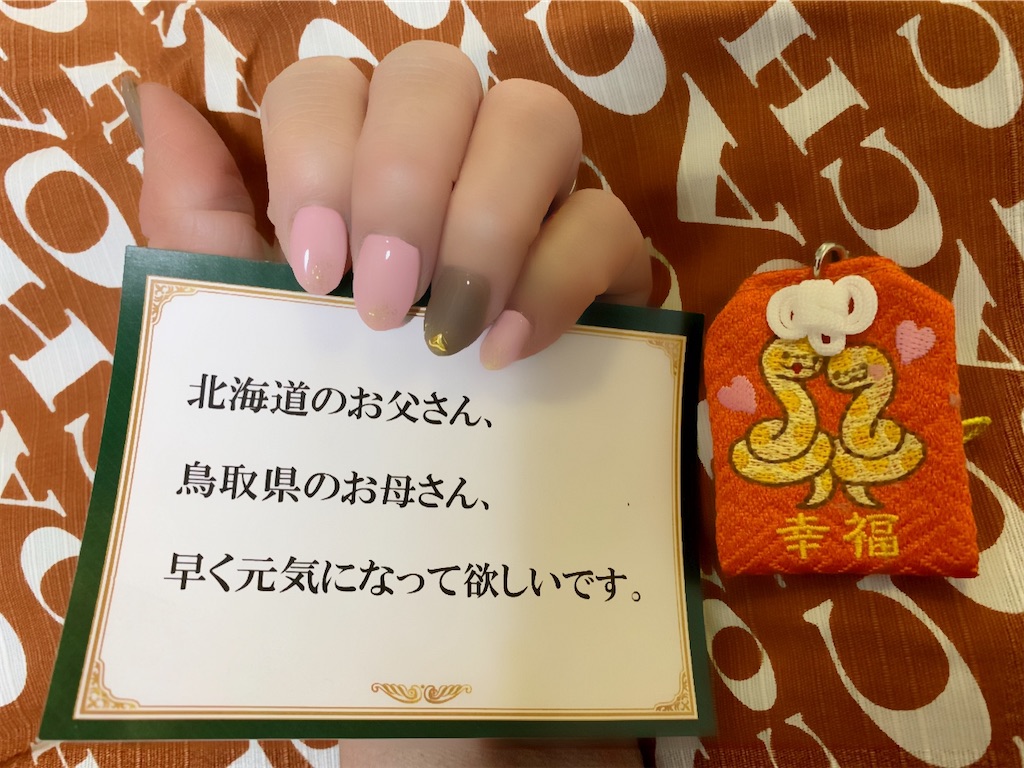 北海道のお父さん、
鳥取県のお母さん、
早く元気になって欲しいです。
幸福